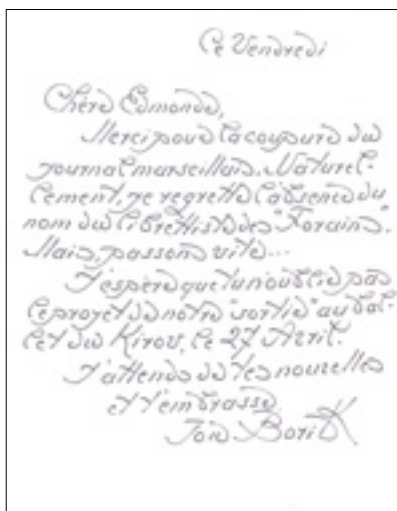 Ce Vendredi
Chère Edmonde,
Merci pour la coupure du
journal marseillais. Naturel-
lement, je regrette l'absence du
nom du librettiste des "Forains".
Mais, passons vite...
J'espère que tu n'oublies pas
le projet de notre "sortie" au Bal-
let du Kirov, le 27 Avril.
J'attends de tes nouvelles
et t'embrasse.
Boris K